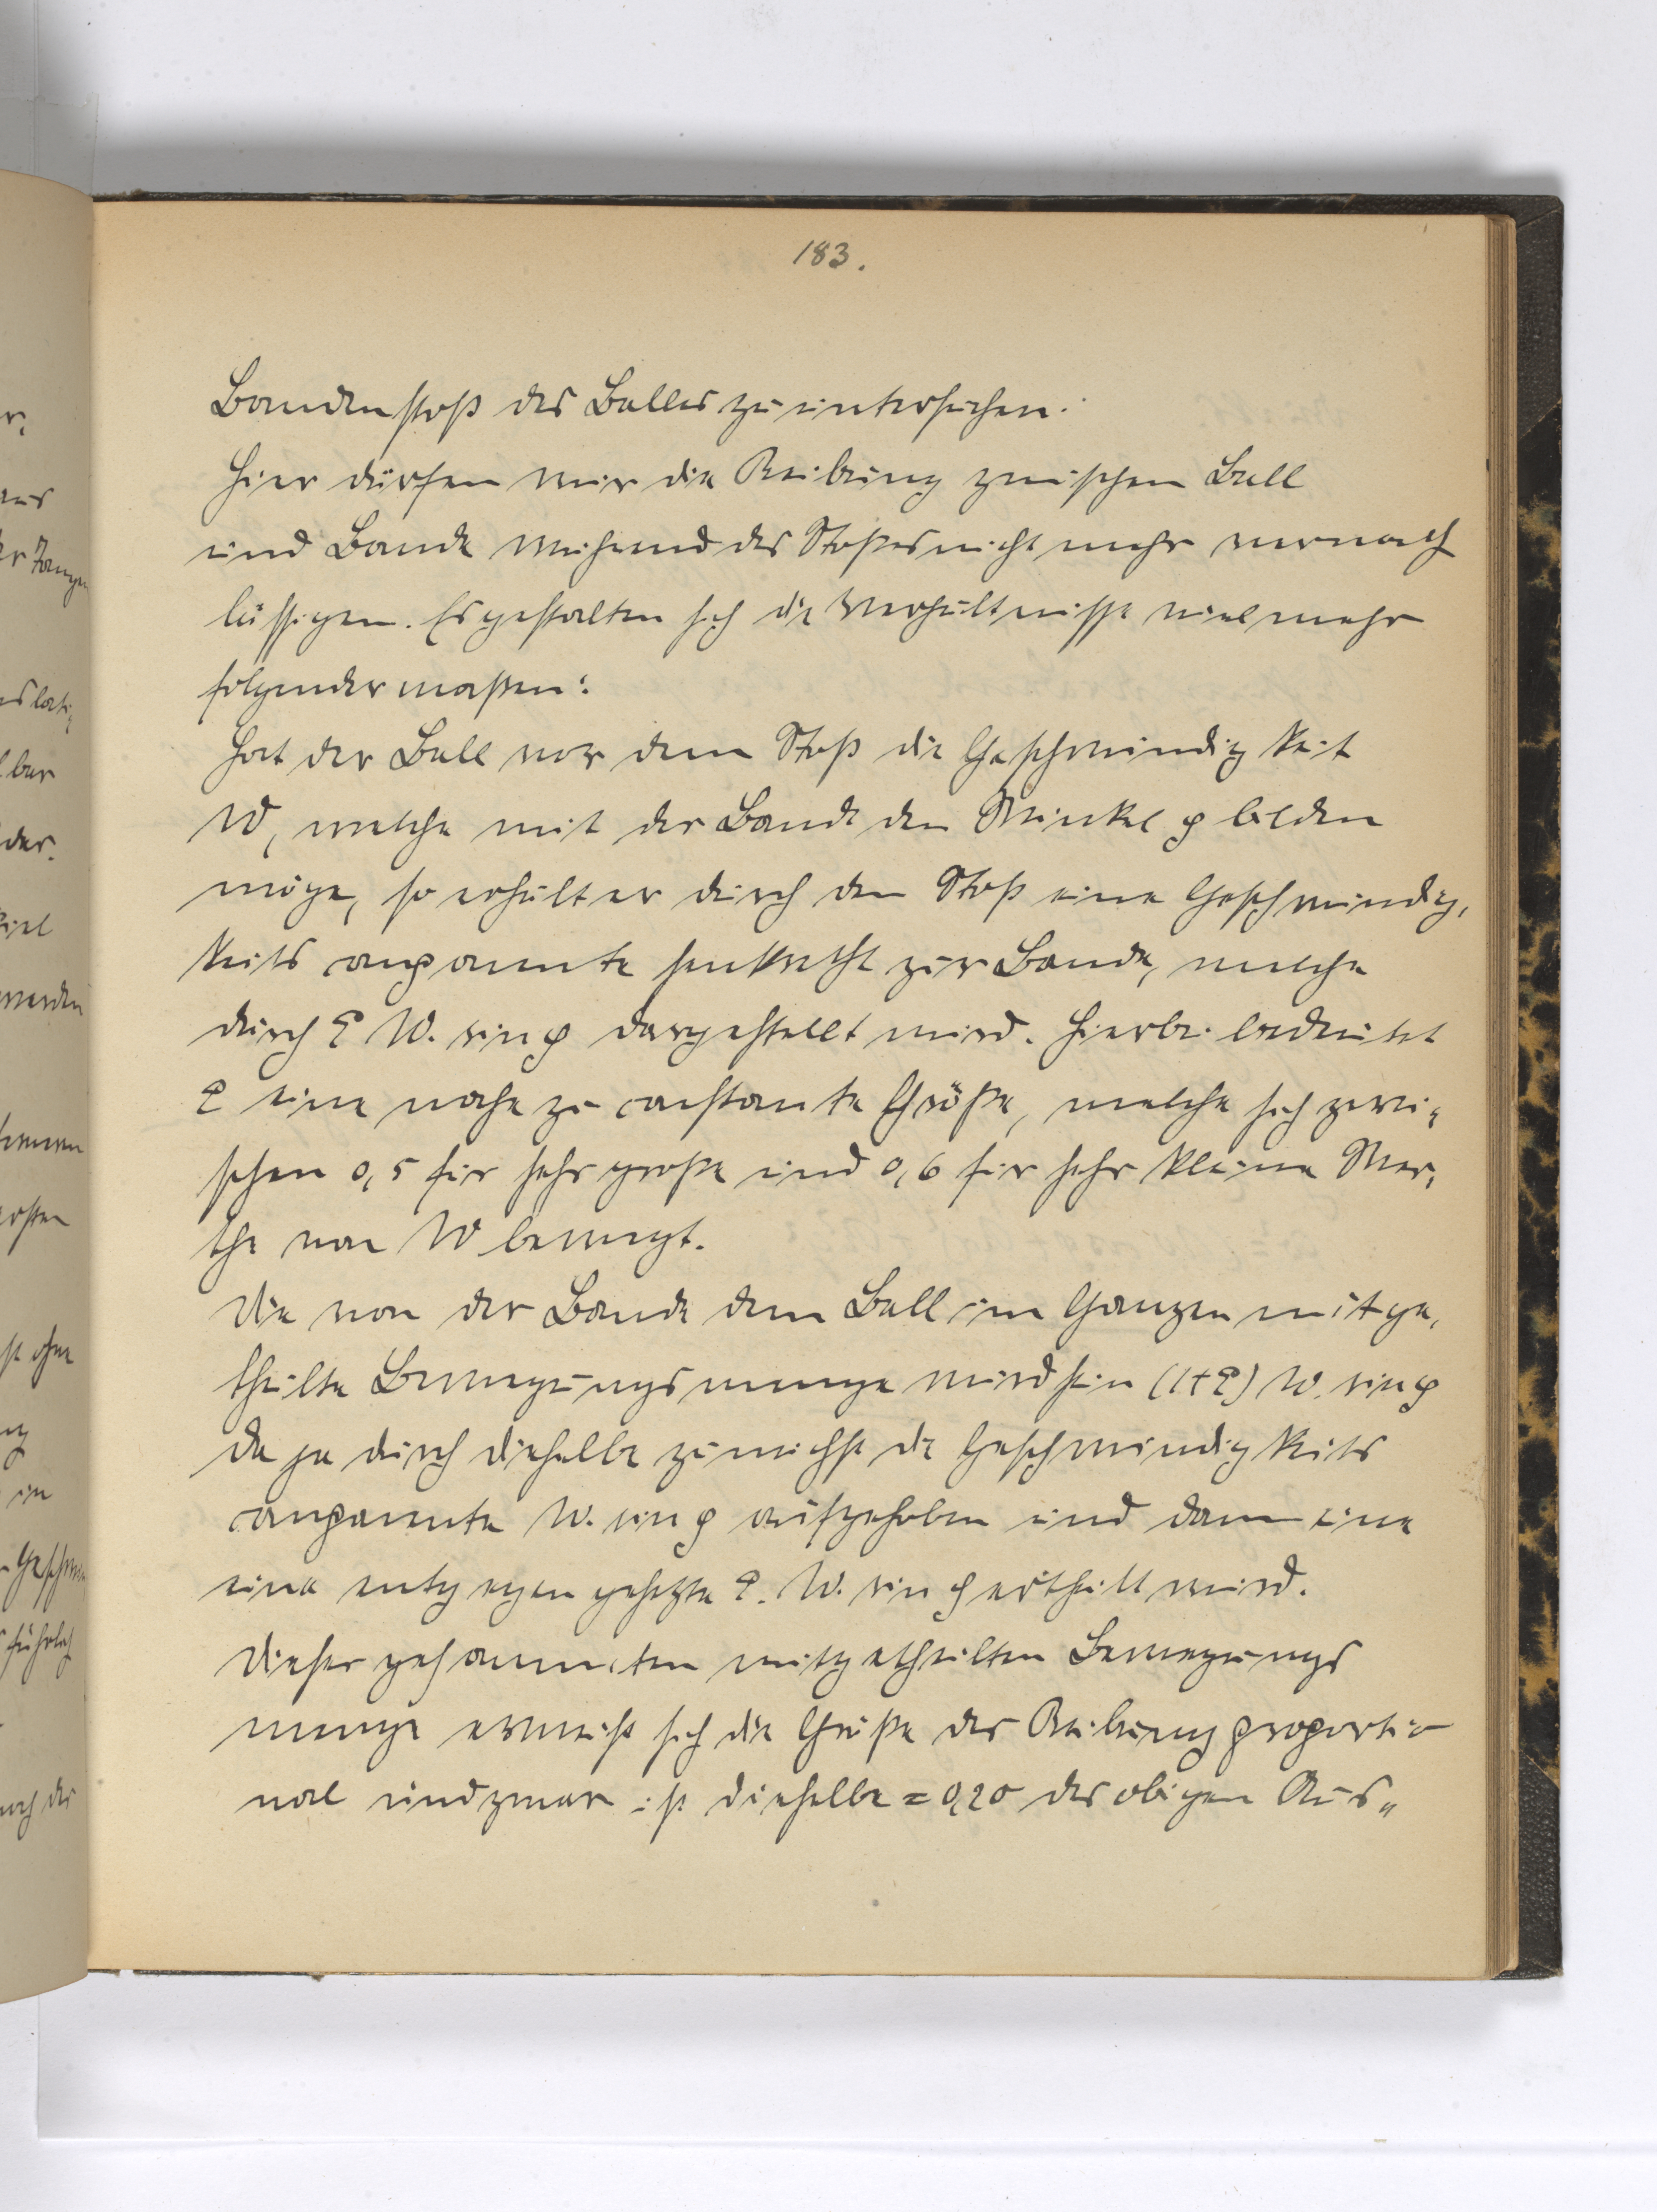 183.
Bandenstoß des Balles zu untersuchen.
Hier dürfen wir die Reibung zwischen Ball
und Bande während des Stoßes nicht mehr vernach
lässigen. Es gestalten sich die Verhältnisse vielmehr
folgendermaßen:
Hat der Ball vor dem Stoß die Geschwindigkeit
W, welche mit der Bande den Winkel φ bilden
möge, so erhält er durch den Stoß eine Geschwindig,
keits componente senkrecht zur Bande, welche
durch ε W. sin φ dargestellt wird. Hierbei bedeutet
ε eine nahezu constante Größe, welche sich zwi,
schen 0,5 für sehr große und 0,6 für sehr kleine Wer,
the von W bewegt.
Die von der Bande dem Ball im Ganzen mitge,
theilte Bewegungsmenge wird sein (1+ε) W. sin φ
da ja durch dieselbe zunächst die Geschwindigkeits
componente W. sin φ aufgehoben und dann eine
eine entgegengesetzte ε. W. sin φ ertheilt wird.
Dieser gesammten mitgetheilten Bewegungs
menge erweist sich die Größe der Reibung proportio
nal und zwar ist dieselbe = 0,20 des obigen Aus„